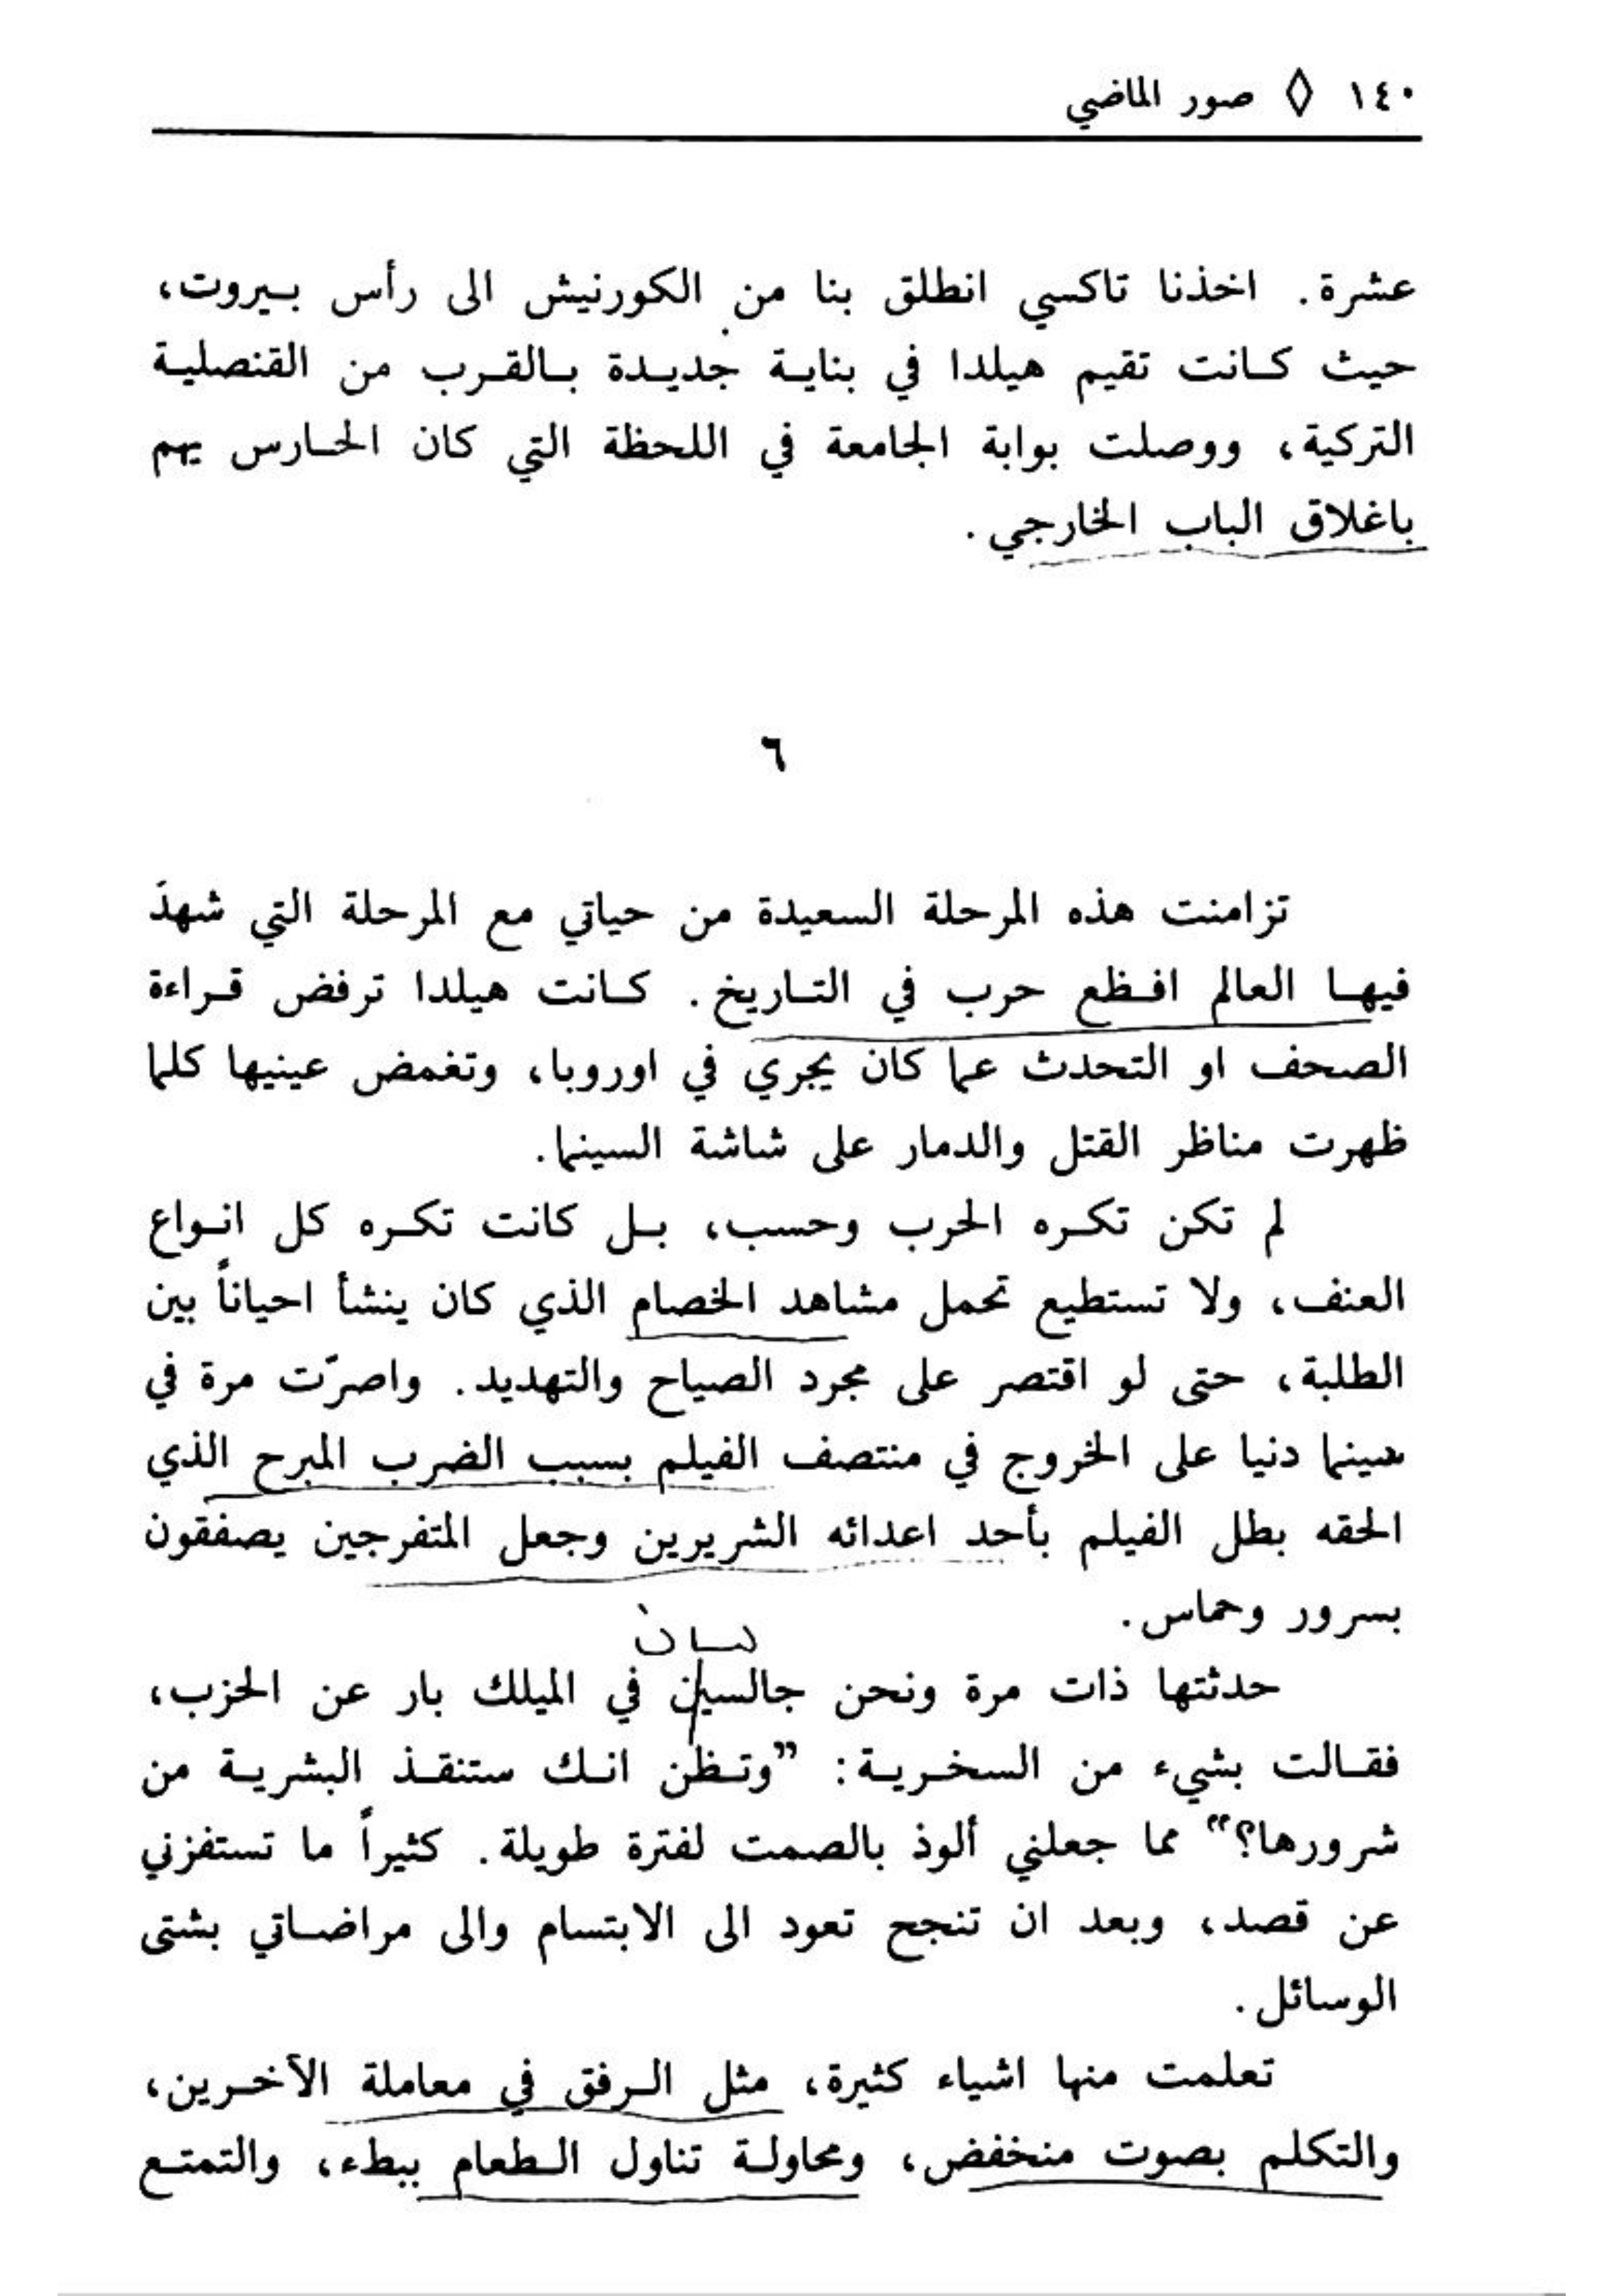 ١٤٠ ◊ صور الماضي
عشرة. اخذنا تاكسي انطلق بنا من الكورنيش الى رأس بيروت،
حيث كانت تقيم هيلدا في بناية جديدة بالقرب من القنصلية
التركية، ووصلت بوابة الجامعة في اللحظة التي كان الحارس يهم
باغلاق الباب الخارجي.
٦
تزامنت هذه المرحلة السعيدة من حياتي مع المرحلة التي شهدَ
فيها العالم افظع حرب في التاريخ. كانت هيلدا ترفض قراءة
الصحف او التحدث عما كان يجري في اوروبا، وتغمض عينيها كلما
ظهرت مناظر القتل والدمار على شاشة السينما.
لم تكن تكره الحرب وحسب، بل كانت تكره كل انواع
العنف، ولا تستطيع تحمل مشاهد الخصام الذي كان ينشأ احياناً بين
الطلبة، حتى لو اقتصر على مجرد الصياح والتهديد. واصرّت مرة في
سينما دنيا على الخروج في منتصف الفيلم بسبب الضرب المبرح الذي
الحقه بطل الفيلم بأحد اعدائه الشريرين وجعل المتفرجين يصفقون
بسرور وحماس.
حدثتها ذات مرة ونحن جالسين في الميلك بار عن الحزب،
فقالت بشيء من السخرية: ”وتظن انك ستنقذ البشرية من
شرورها؟“ مما جعلني ألوذ بالصمت لفترة طويلة. كثيراً ما تستفزني
عن قصد، وبعد ان تنجح تعود الى الابتسام والى مراضاتي بشتى
الوسائل.
تعلمت منها اشياء كثيرة، مثل الرفق في معاملة الآخرين،
والتكلم بصوت منخفض، ومحاولة تناول الطعام ببطء، والتمتع